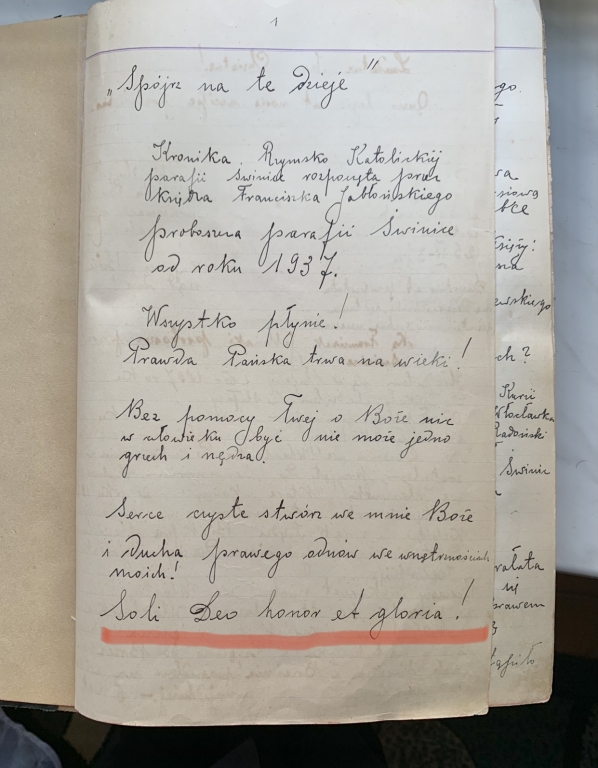 1
„Spójrz na te dzieje"
Kronika Rzymsko Katolickiej
parafii Świnice rozpoczęta przez
Księdza Franciszka Jabłońskiego
proboszcza parafii Świnice
od roku 1937.
Wszystko płynie!
Prawda Pańska trwa na wieki!
Bez pomocy Twej o Boże nic
w człowieku być nie może jedno
grzech i nędza.
Serce czyste stwórz we mnie Boże
i ducha prawego odnów we wnętrznościach
moich!
Soli Deo honor et gloria!
go.
wa
na
ewskiego
ch?
Kurii
Włocławka
Radoński
Świnic
się
prawem